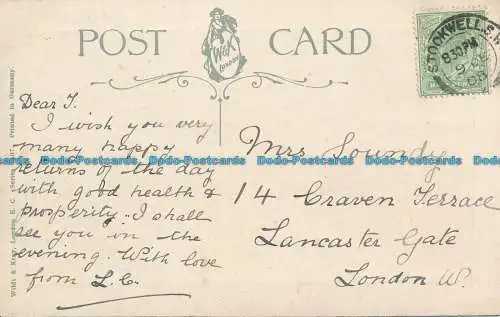 POST CARD
W&K
London
STOCKWELL S.W
8.30 PM
Dear F.
I wish you very
many happy
returns of the day
with good health &
prosperity. I shall
see you in the
evening. With love
from L.C.
Mrs
14 Craven Terrace
Lancaster Gate
London W.
Wildt & Kray, London, E. C.
Printed in Germany
Dodo-Postcards Dodo-Postcards Dodo-Postcards Dodo-Postcards